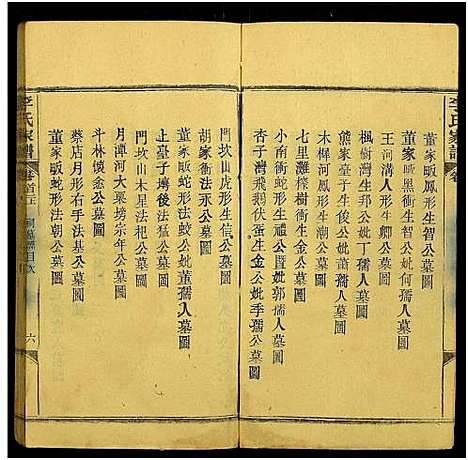 李氏家譜
卷
董家畈鳳形生智公墓圖
董家畈黑衝生智公妣何孺人墓圖
王河溝人形生卿公墓圖
楓樹灣生邦公妣丁孺人墓圖
熊家臺子生俊公妣蕭孺人墓圖
木樨河鳳形生桐公墓圖
七里灘樟樹衝生鋁公墓圖
小南衝蛇形生禮公暨妣郭孺人墓圖
杏子灣飛鵝伏蛋生金公妣季孺公墓圖
門坎山虎形生信公墓圖
胡家衝法安公墓圖
董家畈蛇形法蛟公妣董孺人墓圖
上臺子塆後法猛公墓圖
門坎山木星法杞公墓圖
月潭河大泉塝宗年公墓圖
斗林懷念公墓圖
蔡店月形右手法基公墓圖
董家畈蛇形法朝公墓圖
李氏家譜
卷首
墓圖目次
六